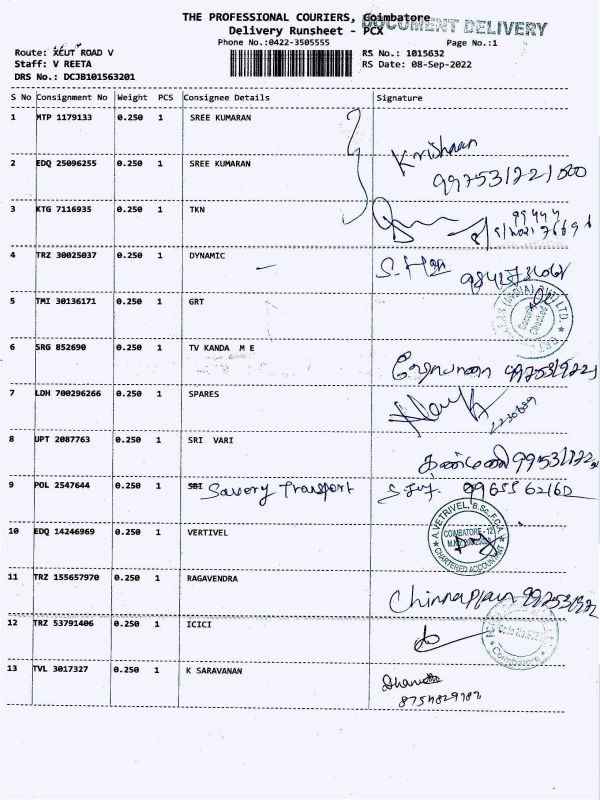 THE PROFESSIONAL COURIERS, Coimbatore
DOCUMENT DELIVERY
Delivery Runsheet - PCX
Phone No.:0422-3505555
Page No.:1
Route: XCUT ROAD V
RS No.: 1015632
Staff: V REETA
RS Date: 08-Sep-2022
DRS No.: DCJB101563201
S No Consignment No Weight PCS Consignee Details Signature
1 MTP 1179133 0.250 1 SREE KUMARAN
Krishnan
2 EDQ 25096255 0.250 1 SREE KUMARAN
3 KTG 7116935 0.250 1 TKN
4 TRZ 30025037 0.250 1 DYNAMIC
5 TMI 30136171 0.250 1 GRT
6 SRG 852690 0.250 1 TV KANDA M E
7 LDH 700296266 0.250 1 SPARES
8 UPT 2087763 0.250 1 SRI VARI
9 POL 2547644 0.250 1 SBI Savery Transport
A.VETRIVEL, B.Sc.,F.C.A.
COIMBATORE - 12
CHARTERED ACCOUNTANT
10 EDQ 14246969 0.250 1 VERTIVEL
11 TRZ 155657970 0.250 1 RAGAVENDRA
12 TRZ 53791406 0.250 1 ICICI
Coimbatore
13 TVL 3017327 0.250 1 K SARAVANAN